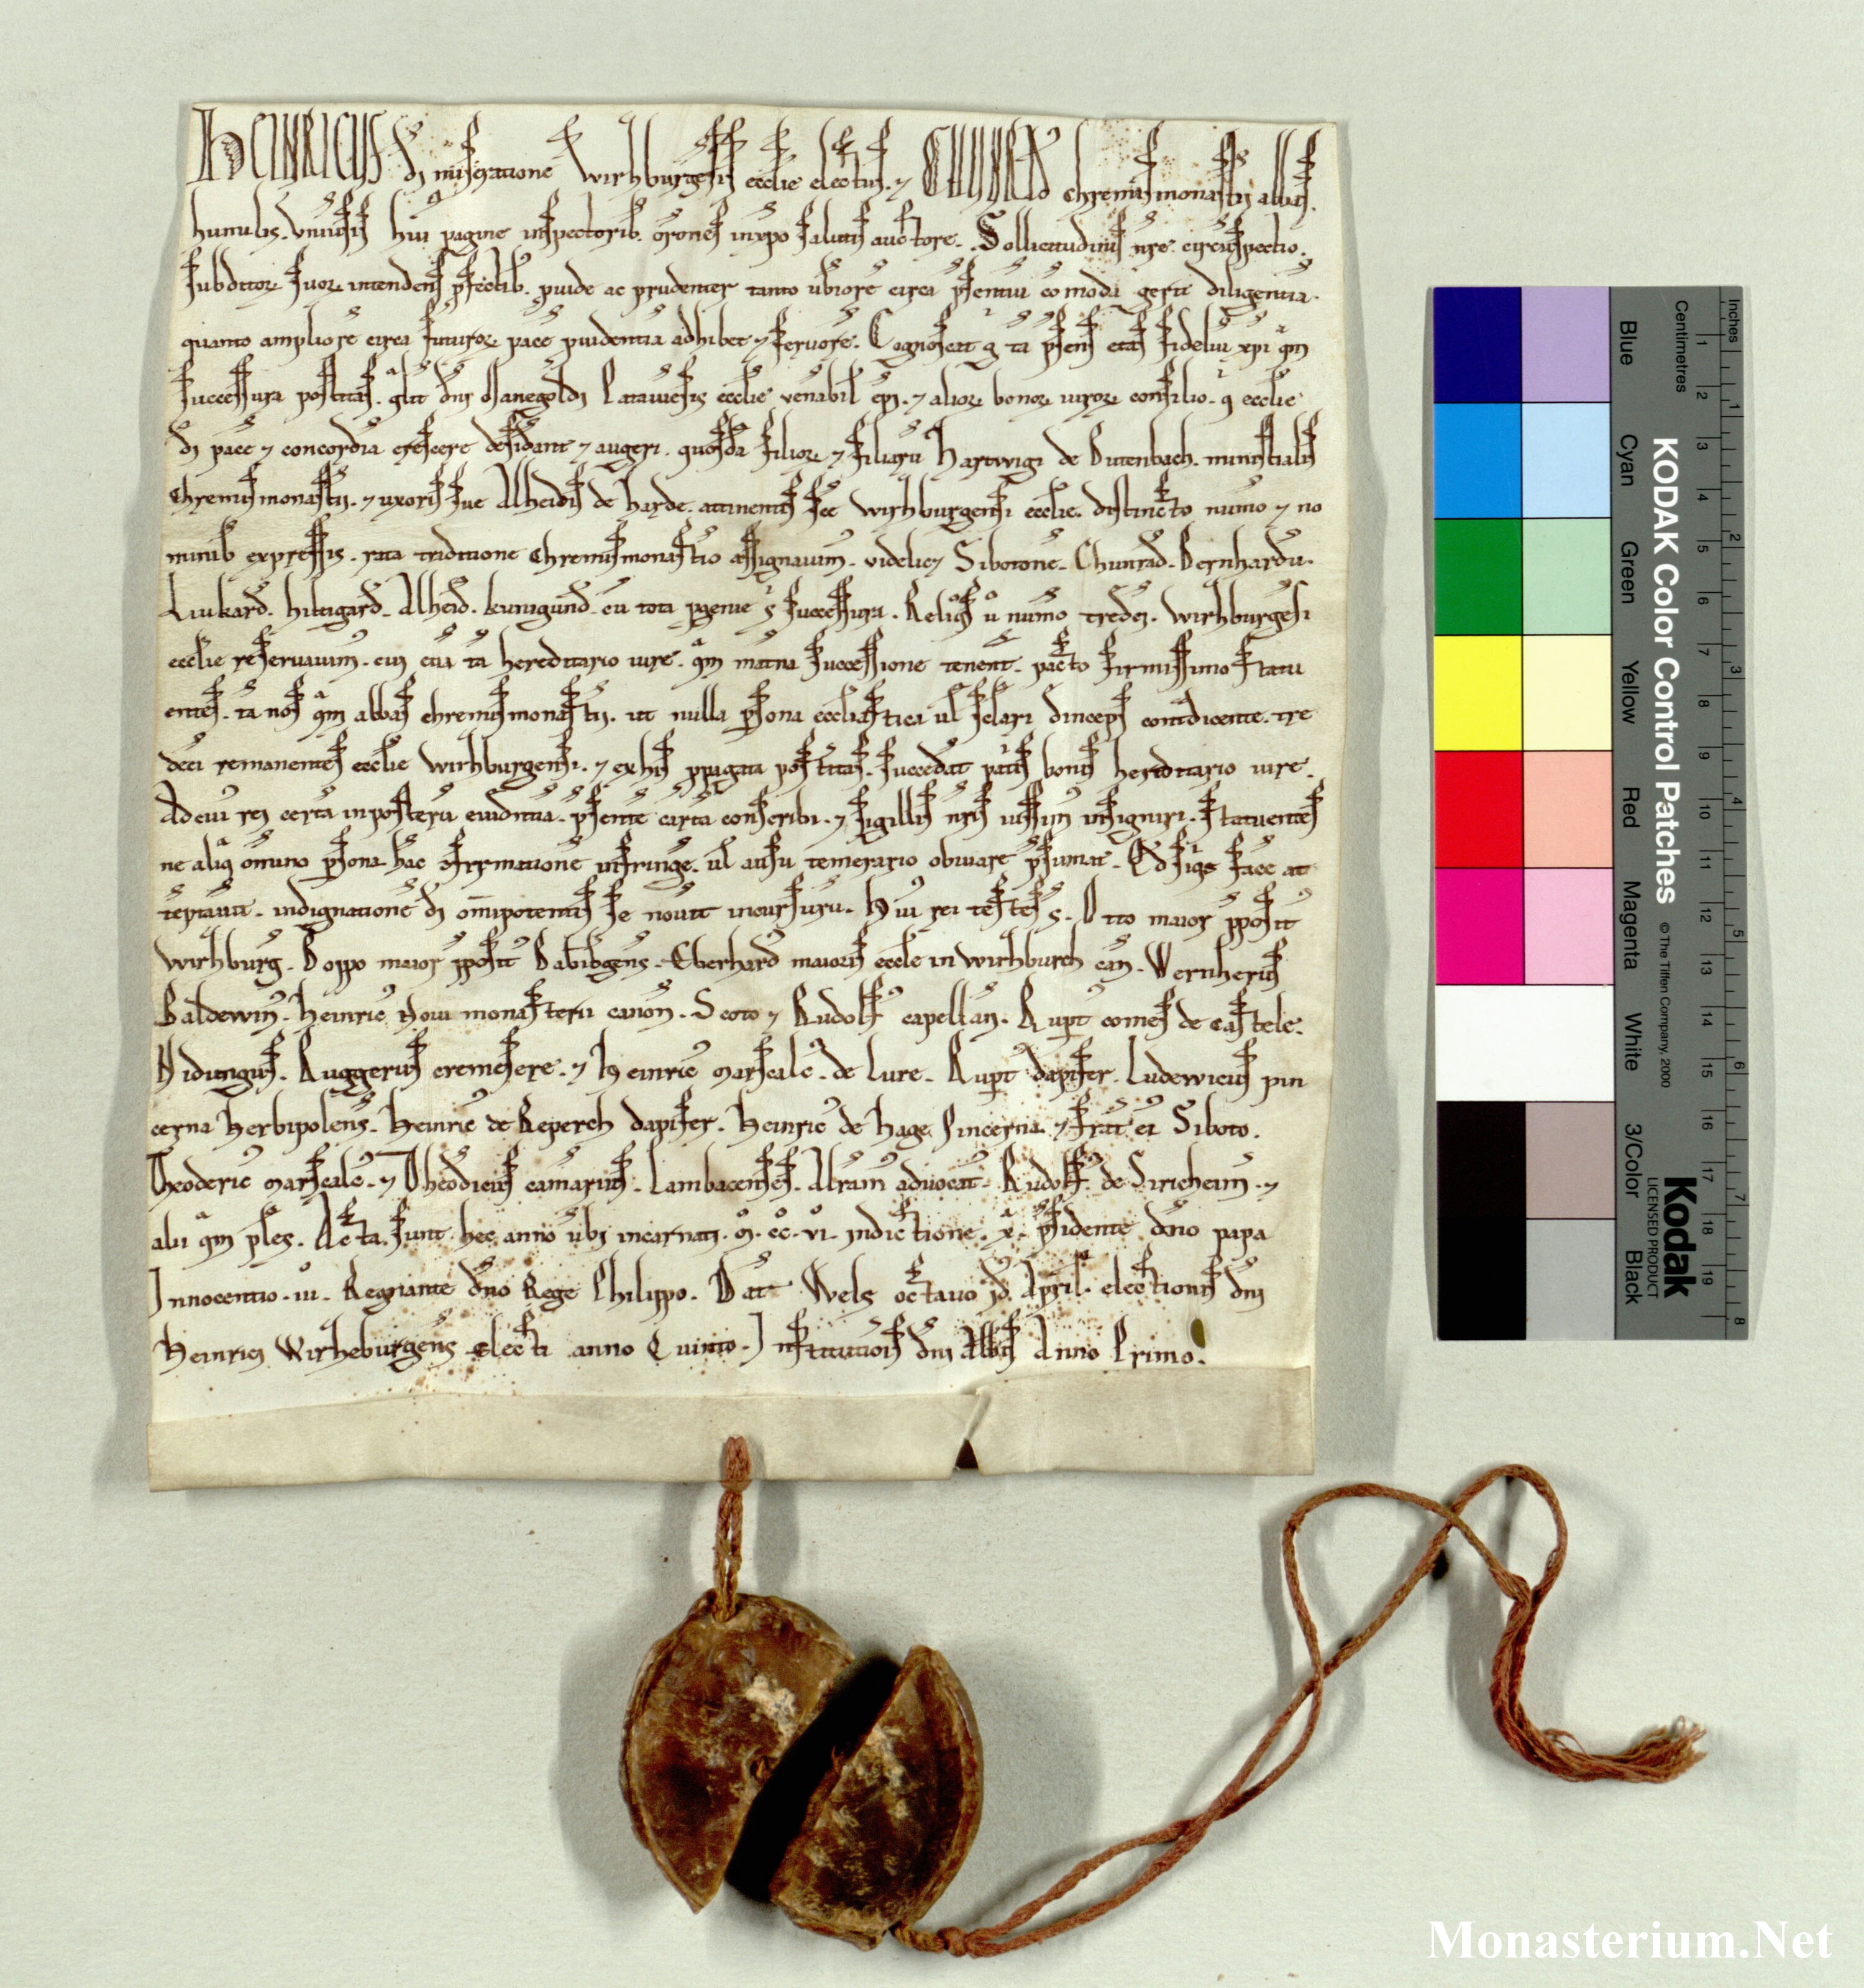 HEINRICUS di miseratione Wirzburgensis eccłie electus. ⁊ CHUNRAD chremismonastii abbas.
humilis. universis huius pagine inspectorib. orones in xpo salutis auctore. Sollicitudinis nre circuspectio.
subditor suor intendens pfectib. puide ac prudenter tanto ubiore circa psentiu comoda gerit diligentia.
quanto ampliore circa futuror pace puidentia adhibet ⁊ fervore. Cognoscat g ta psens etas fideliu xpi qm
successura posteritas. qlit dns Manegold Pataviesis eccłie venabil epi. ⁊ alior bonor viror consilio. q eccłie
di pace ⁊ concordia crescere desidant ⁊ augeri. quosda filior ⁊ filiaru Hartwigi de Butenbach. ministialis
Chremismonastii. ⁊ uxoris sue Alheidis de harde. attinentis sce Wirzburgensi eccłie. distincto numo ⁊ no
minib expressis. rata traditione Chremismonastio assignavim. videlic Sibotone. Chunrad. Bernhardu.
Liukard. hiltigard. Alheid. kunigund. cu tota pgenie s successura. Reliqs u numo tredeci. Wirzburgesi
eccłie reservavim. cu eia ta hereditario iure. qm matna successione tenent. pacto firmissimo statu
entes. ta nos qm abbas chremismonastii. ut nulla psona ecclīastica ul sclari dinceps contdicente. tre
deci remanentes eccłie Wirzburgensi. ⁊ ex his ppagata posteritas. succedat patis bonis hereditario iure.
Ad cui rei certa in posteru evidentia. psente carta conscribi. ⁊ sigillis nris iussim insigniri. statuentes
ne aliq omnino psona hac confirmatione infringe. ul ausu temerario obviare psumat. Qd siqs face at
teptaverit. indignatione di omipotentis se noverit incursuru. Hui rei testes s. Otto maior pposit
Wirzburg. Poppo maior pposit Babibgens. Eberhard maioris eccle in Wirzburch can. Wernherus
Baldewin. Heinric Novi monasterii canon. Scoto ⁊ Rudolf capellan. Rupt comes de castele.
Nidungus. Ruggerus cremesere. ⁊ Heinric marscalc. de Lure. Rupt dapifer. Ludewicus pin
cerna Herbipolens. Heinric de Reperch dapifer. Heinric de hage Pincerna. ⁊ frat ei Siboto.
Theoderic marscalc. ⁊ Theodicus camarius. Lambacenses. Alram advocat. Rudolf de Siricheim. ⁊
alii qm ples. Acta sunt hec anno vbi incarnati. M. cc. vi. indictione. x. psidente dno papa
Innocentio. iii. Regnante dno Rege Philippo. Dat Wels octavo id. April. electionis dni
Heinrici Wirzeburgens electi anno Quinto. Institutionis dni abbis Anno Primo.
Inches
Centimetres
KODAK Color Control Patches © The Tiffen Company, 2000
Kodak
LICENSED PRODUCT
Blue
Cyan
Green
Yellow
Red
Magenta
White
3/Color
Black
Monasterium.Net